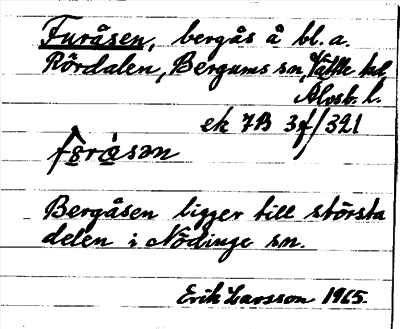 Furåsen, bergås å bl.a.
Rördalen, Bergums sn, Vättle hd,
Älvsb. l.
ek 7B 3f/321
Bergåsen ligger till största
delen i Nödinge sn.
Erik Larsson 1965.